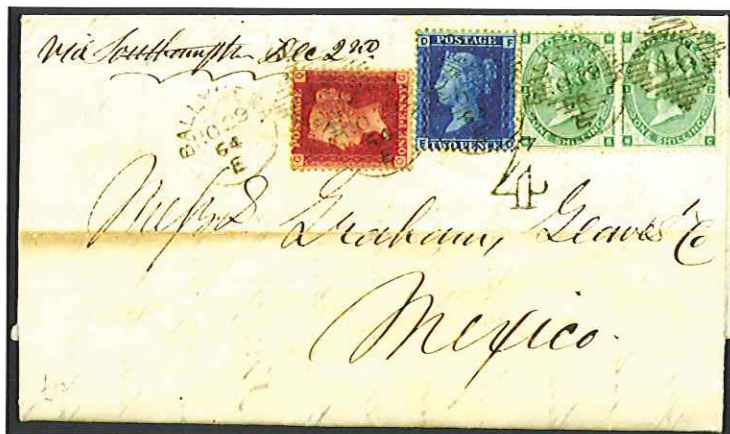 via Southampton Dec 2nd
BALLY
NO 29
64
E
D F
POSTAGE
TWO PENCE
ONE PENNY
POSTAGE
ONE SHILLING
POSTAGE
ONE SHILLING
46
4
Messrs Graham, Geaves & Co
Mexico.